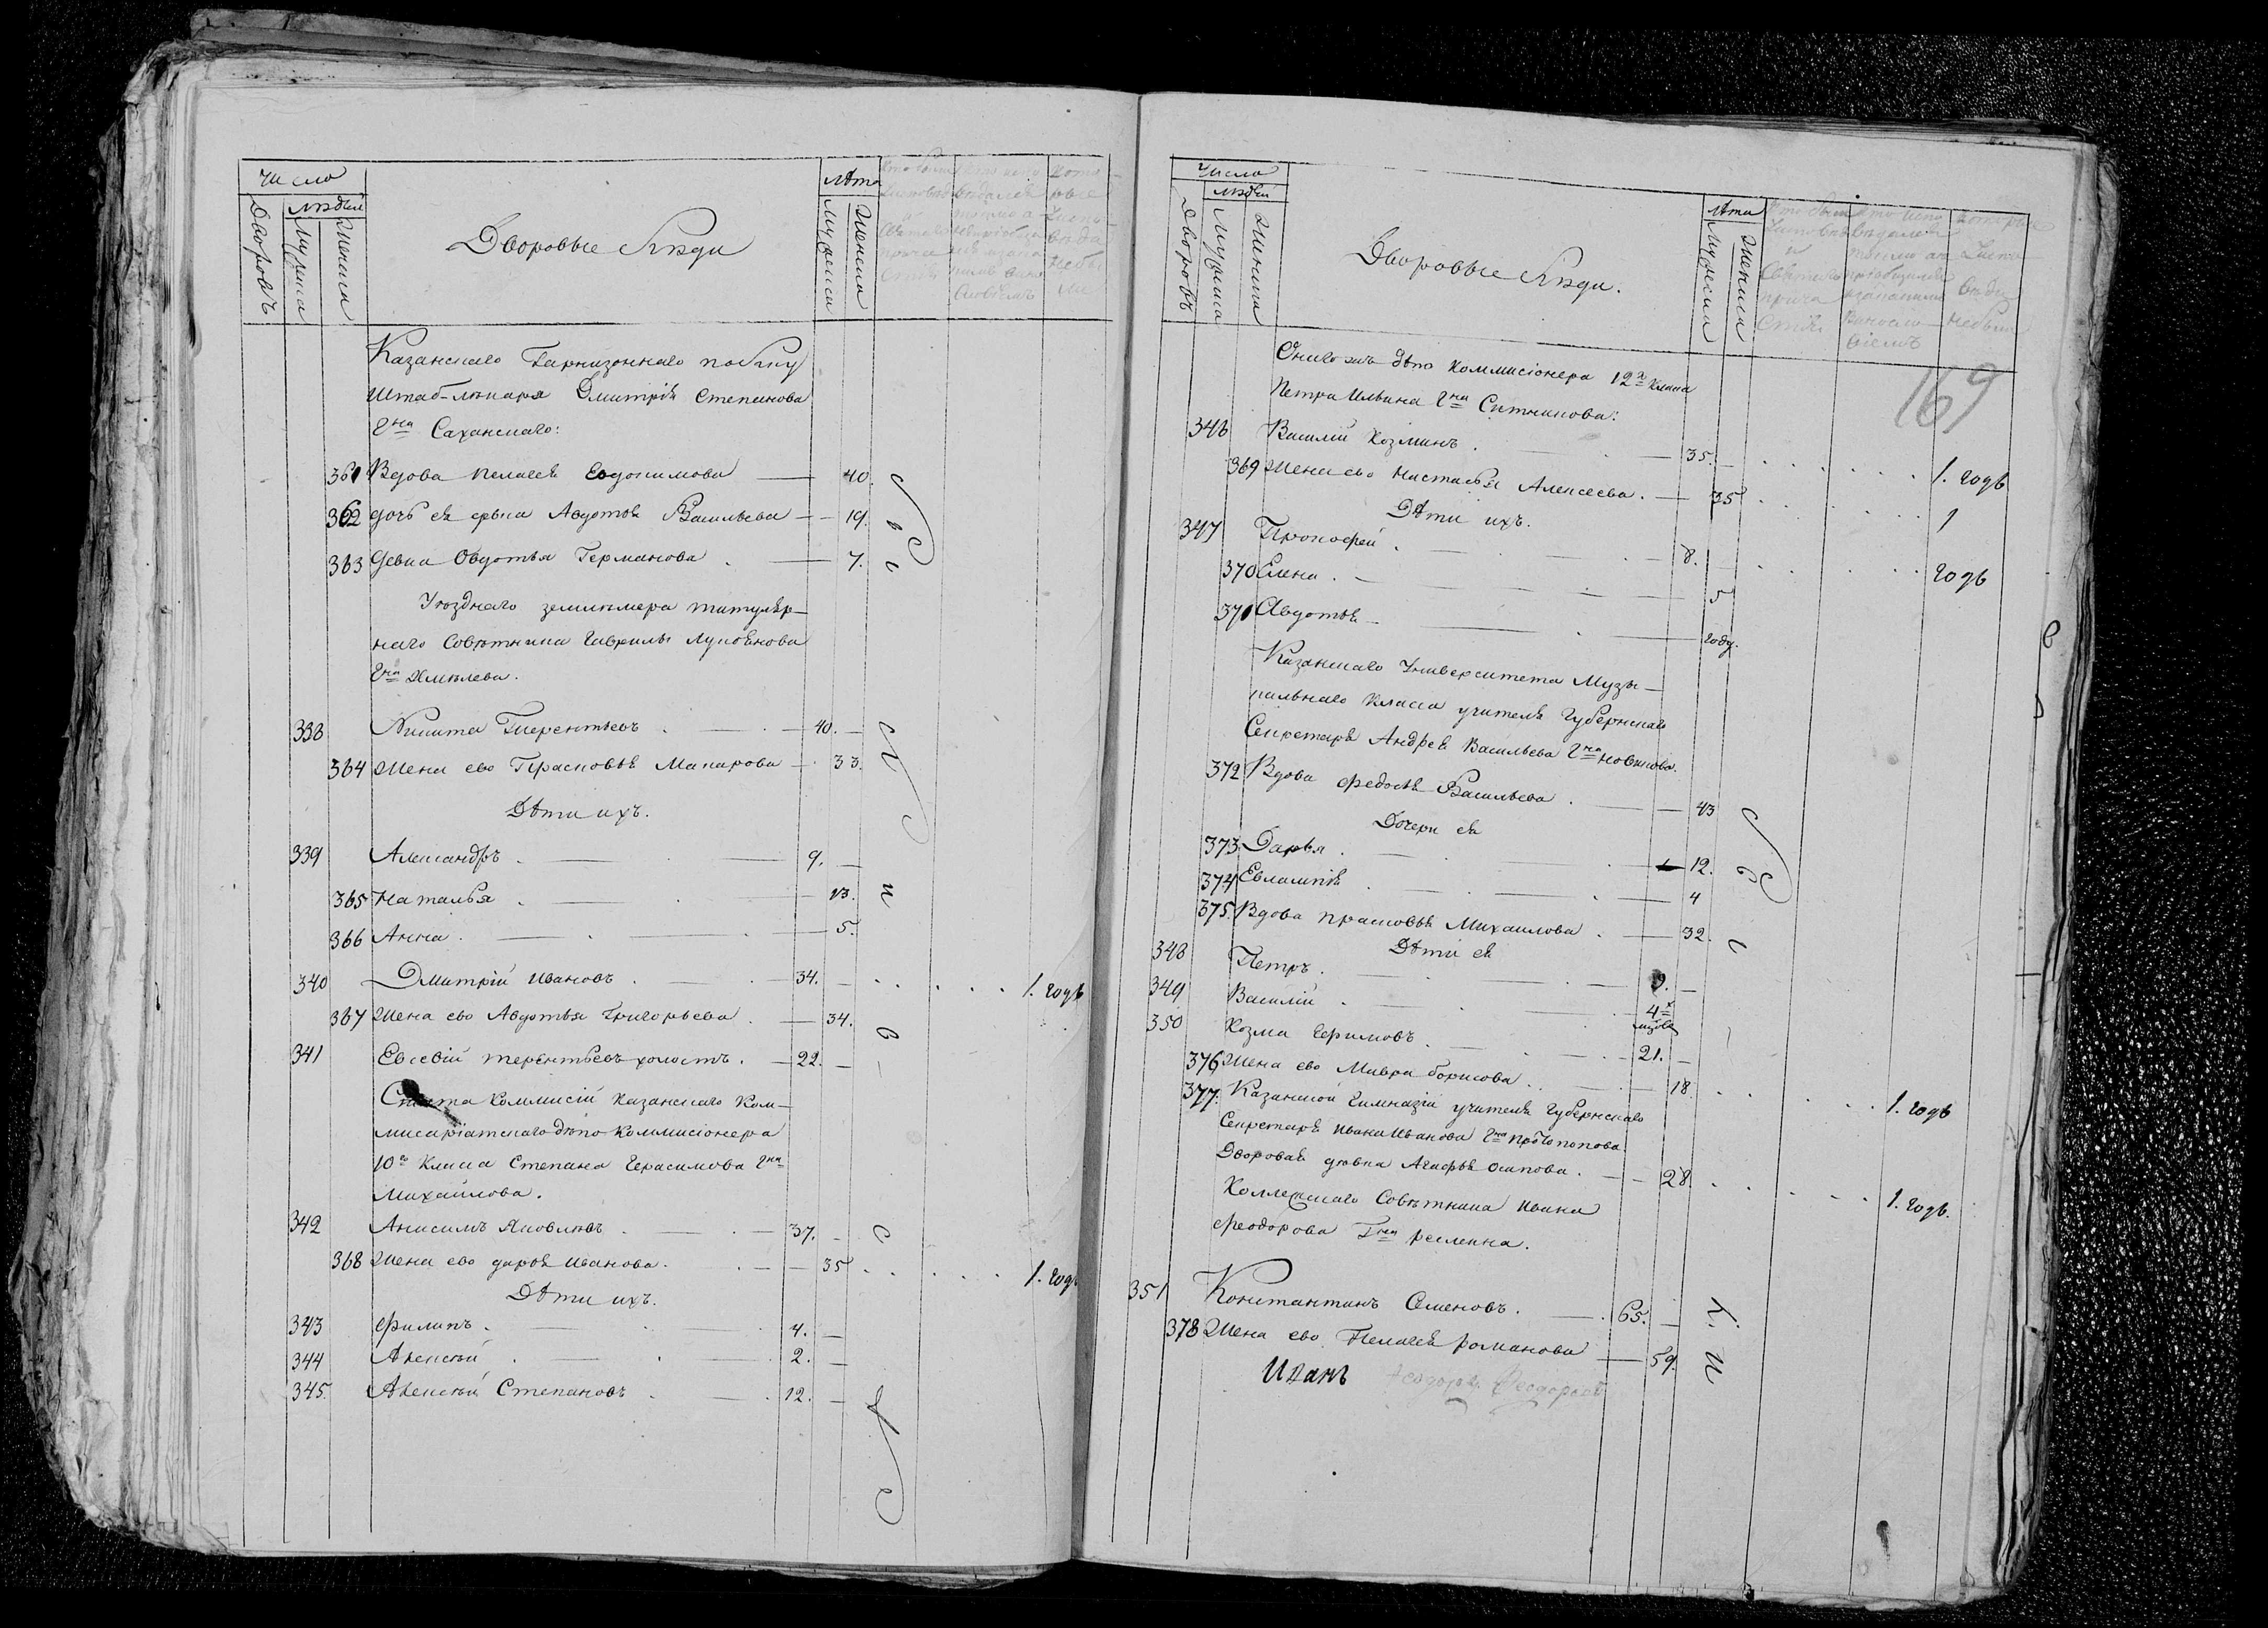 Число
Людей
Дворовъ
Мужеска
Женска
Дворовые Люди
Лѣта
Мужеска
Женска
Казанскаго Гарнизоннаго полку
Штаб-лѣкаря Дмитрія Степанова
Гна Саханскаго:
361 Вдова Пелагея Евдокимова 40.
362 дочь ея девка Авдотья Васильева 19.
363 Девка Овдотья Германова 7.
Уѣзднаго землемера титуляр-
наго Совѣтника Гаврилы Лукоянова
Гна Хмѣлева.
338 Никита Терентьевъ 40.
364 Жена ево Прасковья Макарова 33.
Дѣти ихъ.
339 Александръ 9.
365 Наталья 13.
366 Анна 5.
340 Дмитрій Ивановъ 34. 1. годъ
367 Жена ево Авдотья Григорьева 34.
341 Евсевій Терентьевъ холостъ. 22.
Коммисіи Казанскаго Ком-
мисаріатскаго дѣпо Коммисіонера
10го Класа Степана Герасимова Гна
Михайлова.
342 Анисимъ Яковлевъ 37.
368 Жена ево дарья Иванова. 35 1. годъ
Дѣти ихъ.
343 Филипъ 4.
344 Алексѣй 2.
345. Алексѣй Степановъ 12.
Число
Людей
Дворовъ
Мужеска
Женска
Дворовые Люди.
Лѣта
Мужеска
Женска
169
Онагожъ дѣпо Коммисіонера 12го Класа
Петра Ильина Гна Ситникова:
346 Василій Козминъ 35. 1. годъ
369 Жена ево Настасья Алексеева. 35 1
Дѣти ихъ.
347 Прокофей 8. годъ
370 Елена 5
371 Авдотья году.
Казанскаго Университета Музы-
кальнаго Класса учителя Губернскаго
Секретаря Андрея Васильева Гна Новикова.
372 Вдова Федосья Васильева 43
Дочери ея
373 Дарья 12.
374 Евлампія 4
375. Вдова Прасковья Михаилова 32.
Дѣти ея
348 Петръ 9.
349 Василій 4х
мцовъ
350 Козма Ефимовъ 21.
376 Жена ево Мавра борисова 18. 1. годъ
377. Казанской Гимназіи учителя Губернскаго
Секретаря Ивана Иванова Гна Протопопова
Дворовая дѣвка Агафья Осипова. 28. 1. годъ.
Коллежскаго Совѣтника Ивана
Феодорова Гна
351 Константинъ Семеновъ. 65.
378 Жена ево Пелагея романова 59.
Иванъ